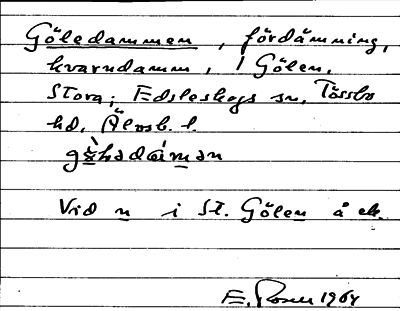 Göledammen, fördämning,
kvarndamm, i Gölen,
Stora; Edsleskogs sn, Tössbo
hd, Älvsb. l.
Vid n i St. Gölen å ek.
E. Rosen 1964